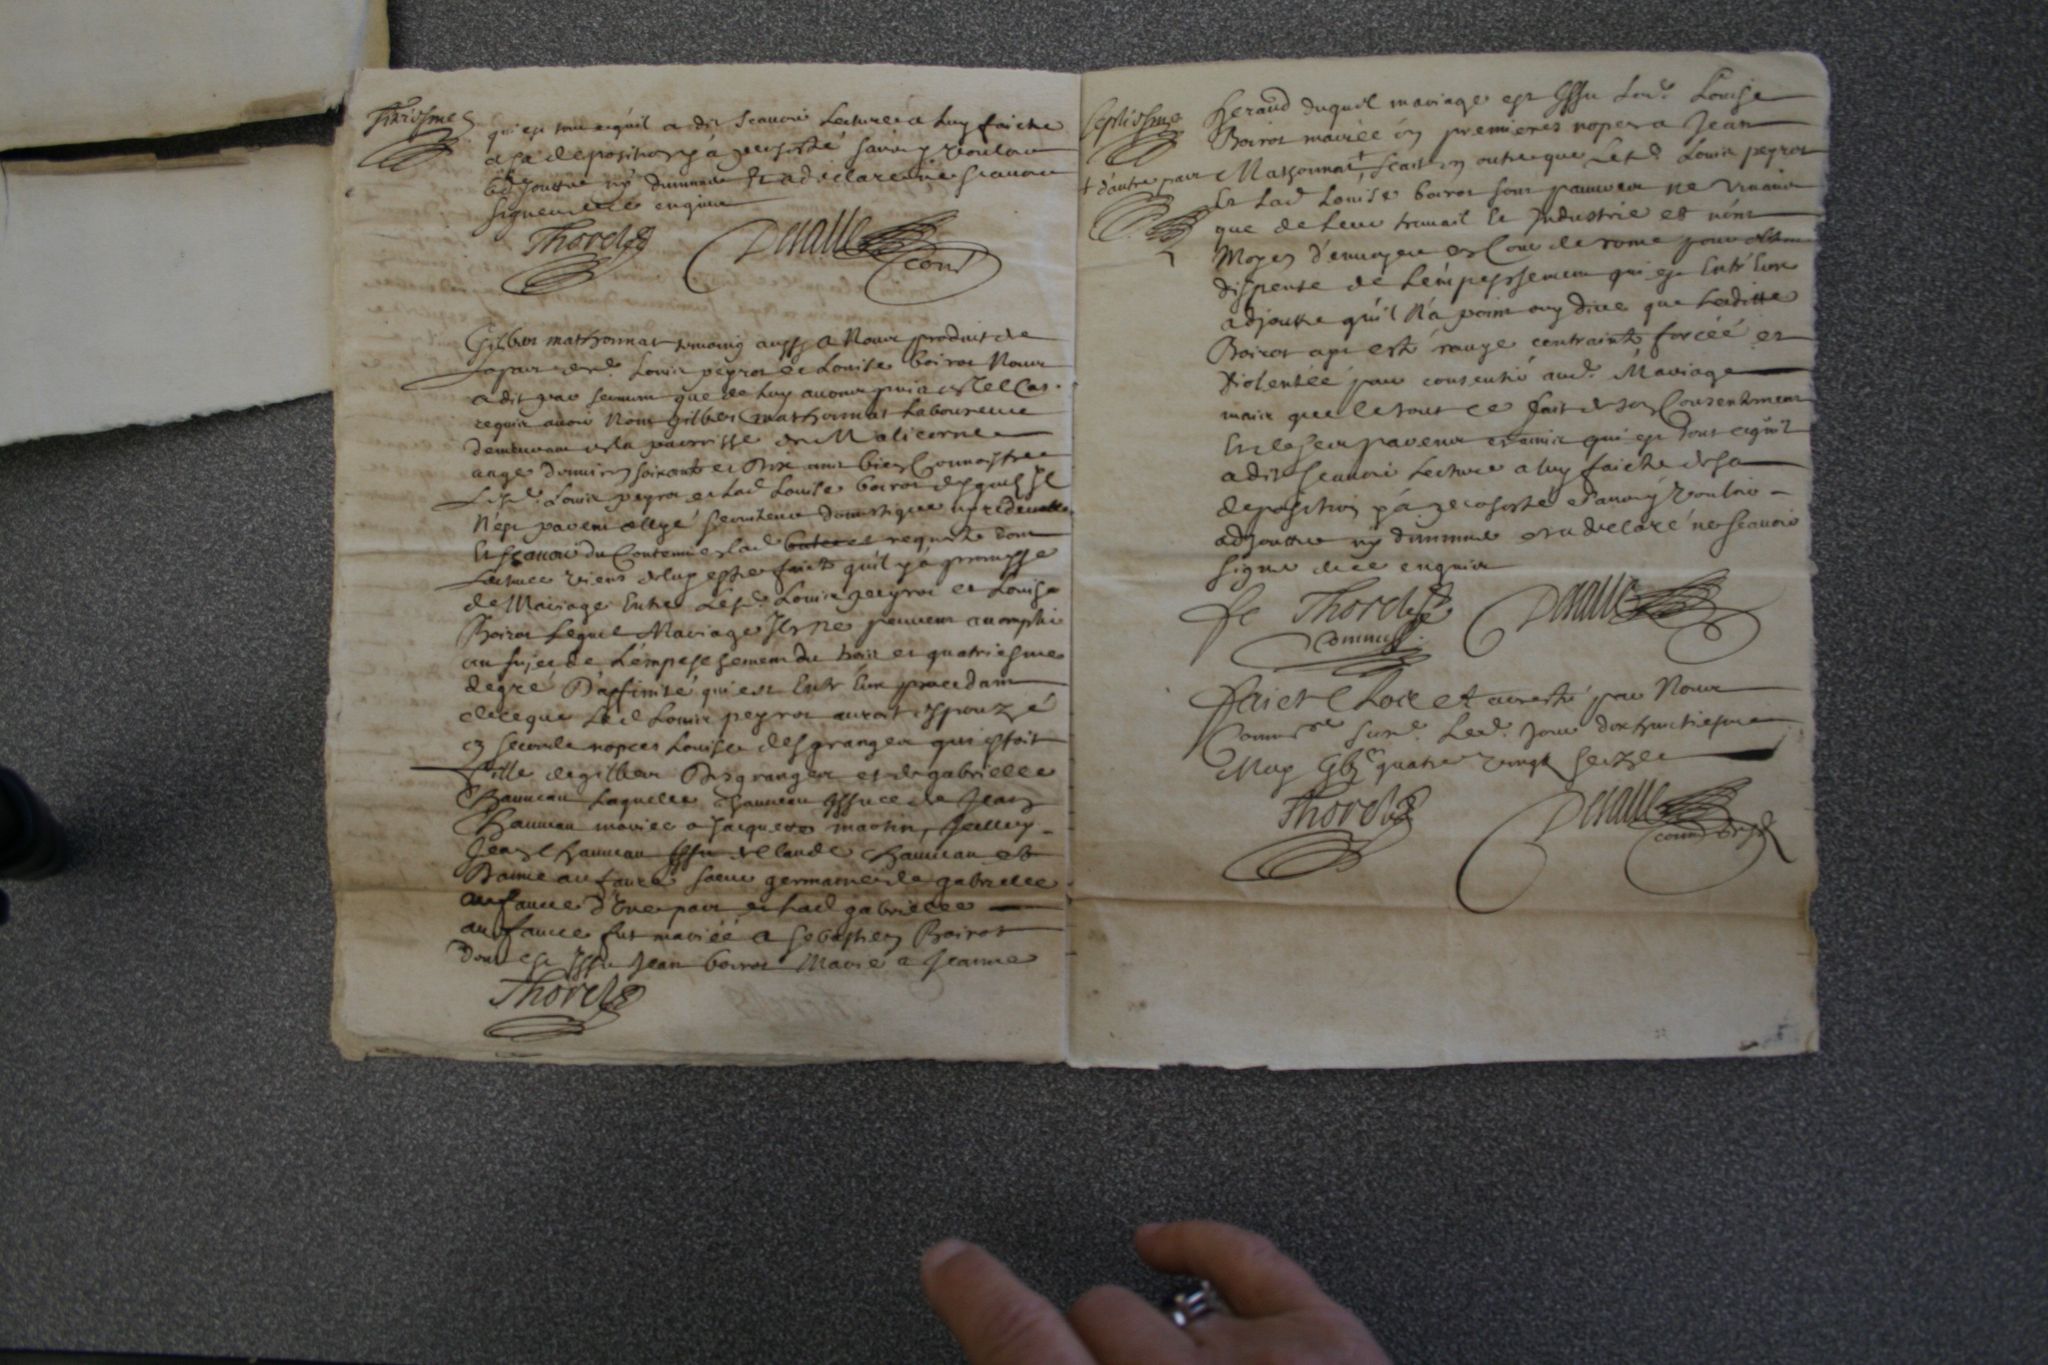 Sixiesme
qui est tout cequil a dit scauoir Lecture a Luy faicte
desa deposition y a persisté sans y vouloir
adjoutter ny diminuer Et adeclaré ne scauoir
signer de ce enquis
Thorel
Desalle
com
Gilbert mathonnat temoing aussy a Nous produit de
Lapart desd. Louis peyrot et Louise boirot Nous
a dit par serment que de luy auons pris
requis auoir Nom Gilbert mathonnat Laboureur
demeurant en la parroisse de Malicorne
aagé denuiron soixante et dix ans bien Connoistre
Lesd. Louis peyrot et Lad Louise boirot desquels Il
N'est parent allyé seruiteur domestique ny redeuable
Et scauoir du Contenu en Lad requeste dont
Lecture vient deluy estre faicte quil y a promesse
de Mariage Entre Lesd. Louis peyrot et Louise
Boirot Lequel Mariage Ils Ne peuuent acomplir
au sujet de Lempeschement du trois et quatriesme
degré D'affinité qui est Entr Eux procedant
de ce que Led Louis peyrot auroit espouzé
en seconde nopces Louise desgranges qui estoit
fille de gilbert Desgranges et de gabrielle
Chauueau Laquelle Chauueau Issue de Jean
Chauueau mariee a Jacquette martin, Iceluy
Jean Chauueau Issu de Claude Chauueau et
Danne aufaure soeur germaine de gabrielle
aufaure d'Une part et Lad gabrielle
aufaure fut mariée a sebastien Boirot
dont est Issu Jean boirot Marié a Jeanne
Thorel
Septiesme
Heraud duquel mariage est Issu Lad. Louise
Boirot mariée en premieres nopces a Jean
Mathonnat, scait en outre que Lesd. Louis peyrot
+ d'autre part
Et Lad. Louise boirot sont pauures ne Viuant
que de Leur trauail Et Industrie et n'ont
Moyen d'enuoyer en Cour de rome pour obtenir
dispense de Lempeschement qui est Entr Eux
adjoutte qu'il N'a point ouy dire que Laditte
Boirot aye esté rauye contrainte forcéé et
Violentéé pour consentir aud. Mariage
mais que le tout ce fait de son Consentement
Et de ses parens et amis qui est tout cequil
a dit scauoir Lecture a luy faicte de sa
deposition y a persisté et sans y vouloir
adjoutter ny diminuer et a declaré ne scauoir
signer de ce enquis
Thorel
commiss.
Desalle
faict Clos et aresté par Nous
Commre susd. Led. Jour dixhuictiesme
May gbjc quatre vingt seize
Thorel
Desalle